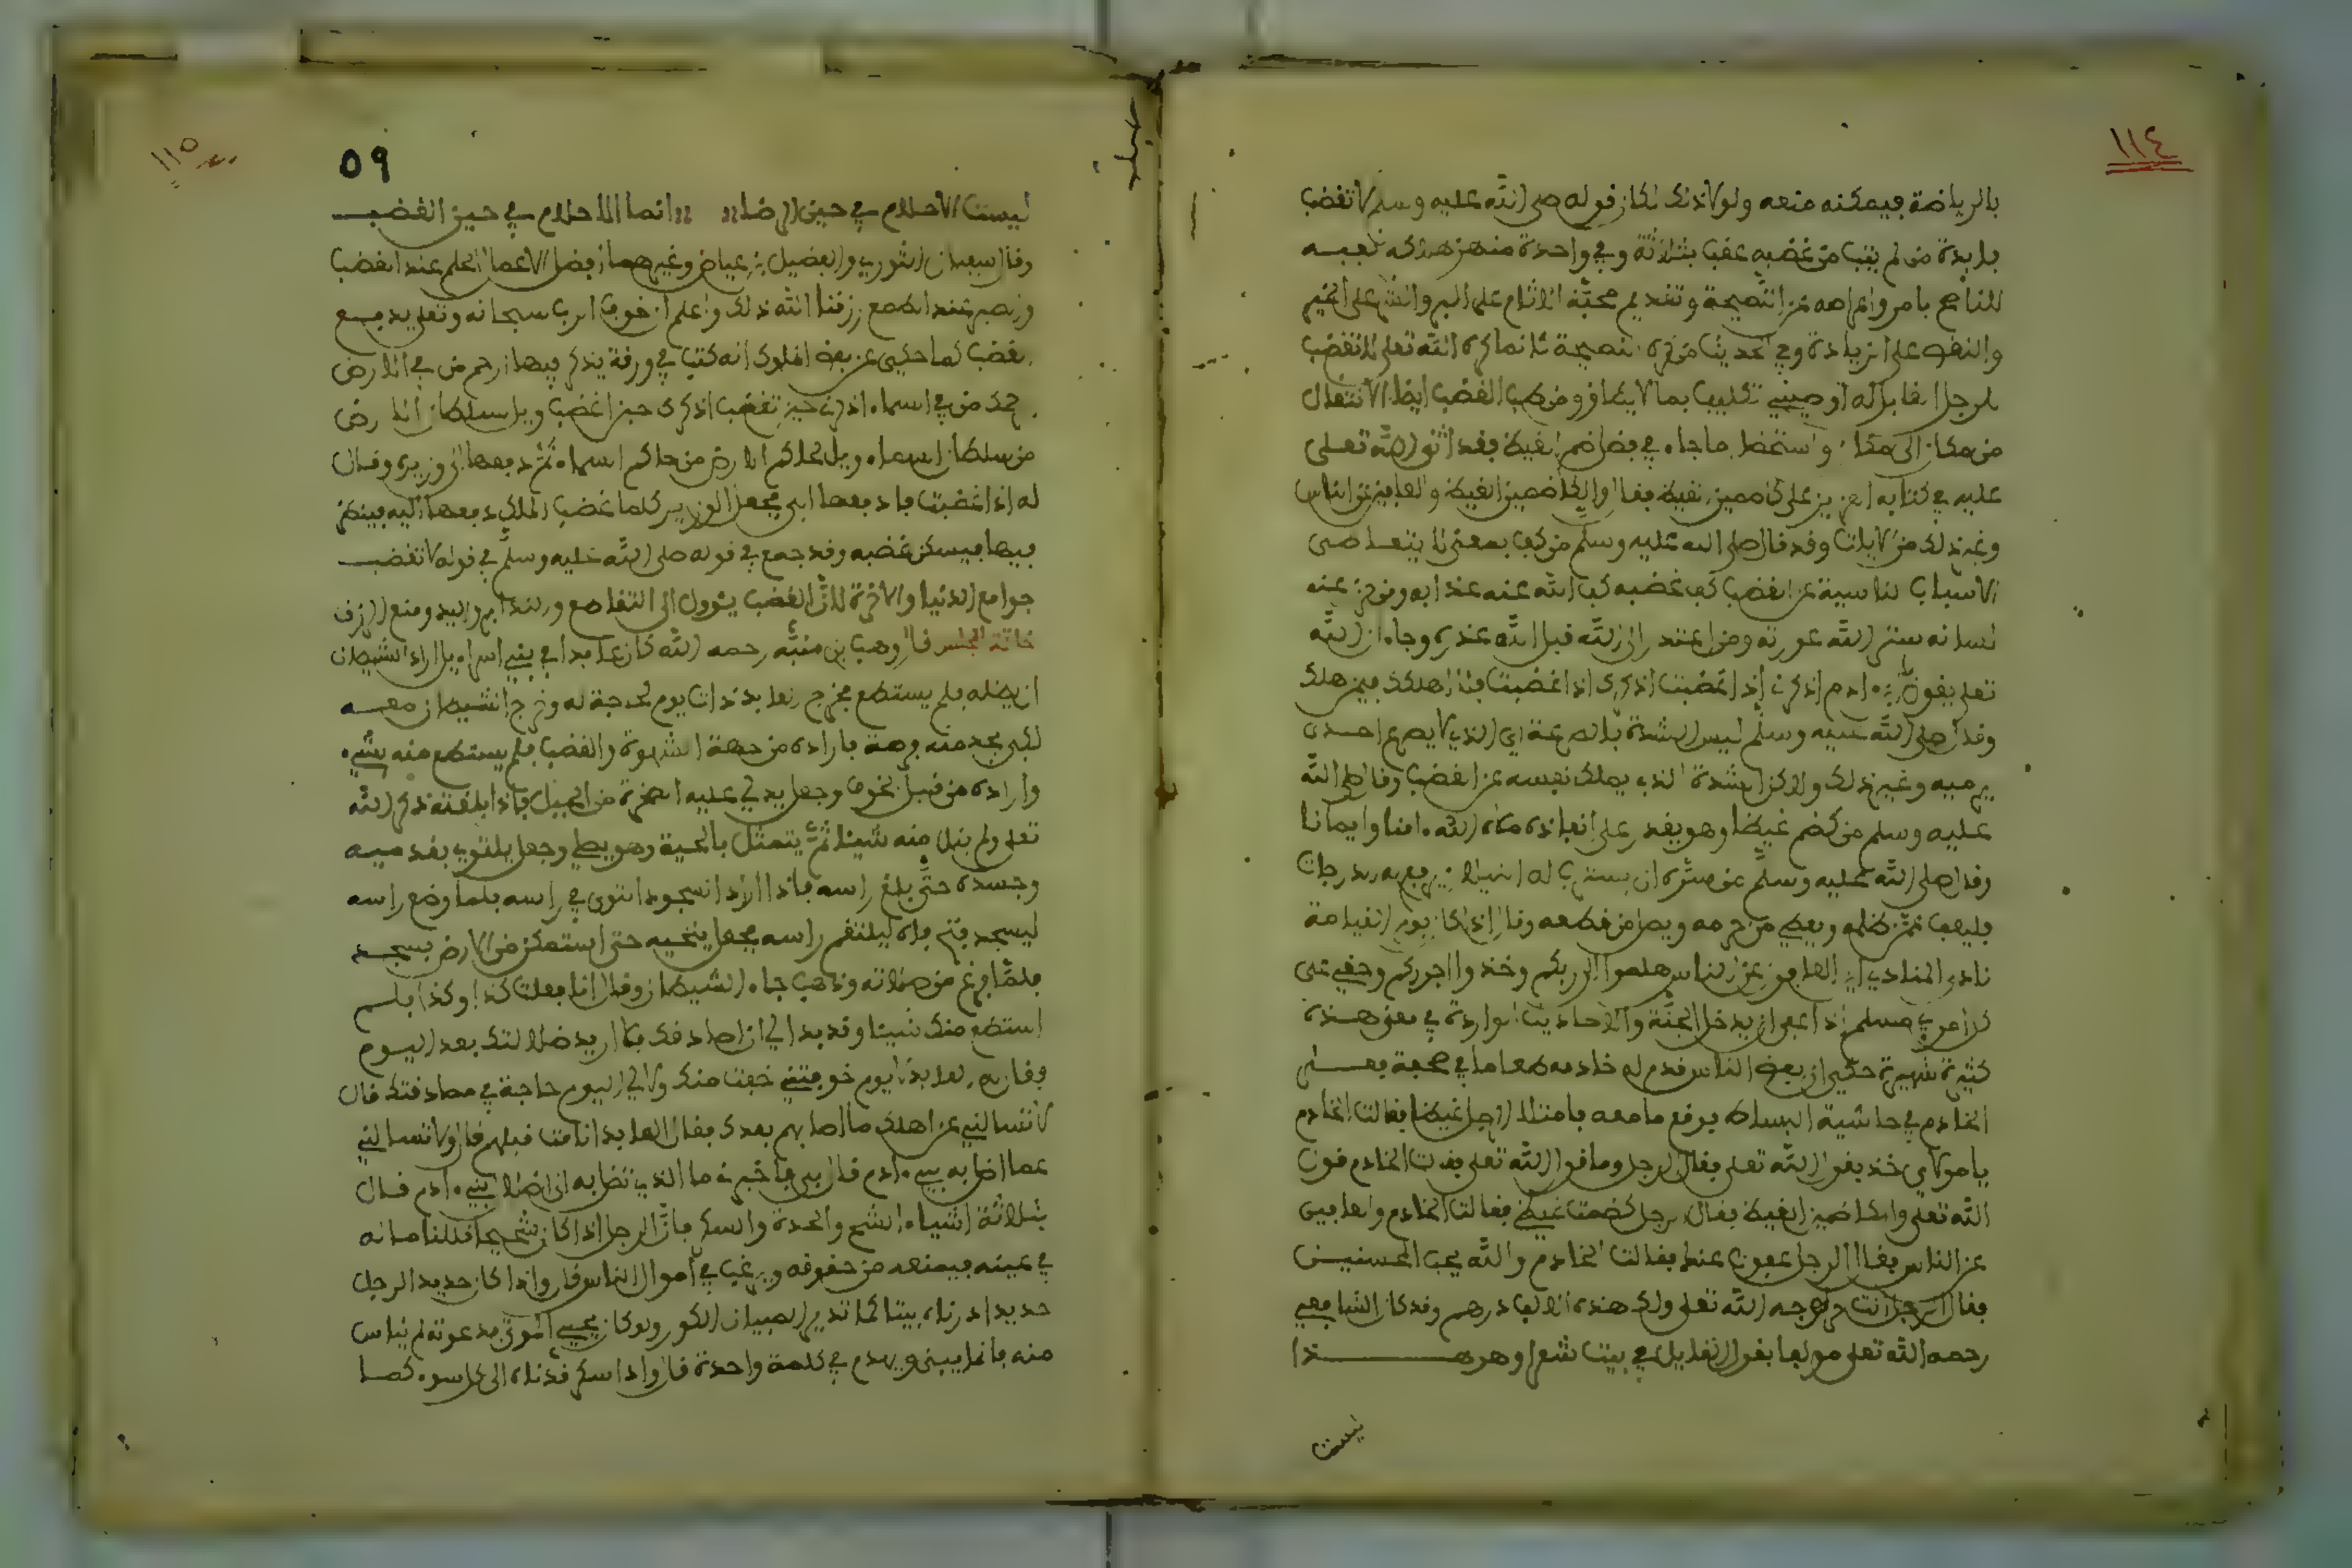 ١١٤
بالرياضة فيمكنه منعه ولولا ذلك لكان قوله صلى الله عليه وسلم لا تغضب
بلا فائدة من لم يتب من غضبه عقب بثلاثة وفي واحدة منهن هلاكه
للناصح بامر واعراضه عن النصيحة وتقديم محبة الاثام على البر والشر على الخير
والنقص على الزيادة وفي الحديث من قوة النصيحة
للرجل القابل له اوصيني تكليف بما لا يطاق ومن طب الغضب ايضا الانتقال
من مكان الى مكان واستحضار ما جاء في فضل كظم الغيظ فقد اثنى الله تعلى
عليه في كتابه العزيز على كاظمين الغيظ فقال والكاظمين الغيظ والعافين عن الناس
وغير ذلك من الايات وقد قال صلى الله عليه وسلم من كف بمعنى لا يتعاطى
الاسباب الناشية عن الغضب كف غضبه كف الله عنه عذابه ومن خزن عنه
لسانه ستر الله عورته ومن اعتذر الى الله قبل الله عذره وجاء ان الله
تعلى يقول يا ابن ءادم اذكرني اذا غضبت اذكرك اذا غضبت فلا اهلكك فيمن هلك
وقال صلى الله عليه وسلم ليس الشدة بالصرعة اي الذي لا يصرع احدى
يرميه وغير ذلك ولاكن الشدة الذي يملك نفسه عن الغضب وقال صلى الله
عليه وسلم من كظم غيظا وهو يقدر على انفاذه ملاه الله ءامنا وايمانا
وقال صلى الله عليه وسلم من سره ان يشرف له البنيان وترفع له درجات
فليعف عن من ظلمه ويعطي من حرمه ويصل من قطعه وقال اذا كان يوم القيامة
نادى المنادي اين العافون عن الناس هلموا الى ربكم وخذوا اجوركم وحق على
كل امرئ مسلم اذا عفى ان يدخل الجنة والاحاديث الواردة في معنى هذه
كثيرة شهيرة حكي ان بعض الناس قدم له خادمه طعاما في صحفة فعثر
الخادم في حاشية البساط فوقع ما معه فامتلا الرجل غيظا فقالت الخادم
يا مولاي خذ بقول الله تعلى فقال الرجل وما قول الله تعلى فقالت الخادم قول
الله تعلى والكاظمين الغيظ فقال الرجل كظمت غيظي فقالت الخادم والعافين
عن الناس فقال الرجل عفوت عنك فقالت الخادم والله يحب المحسنين
فقال الرجل انت حر لوجه الله تعلى ولك هذه الالف درهم وقد كان الشافعي
رحمه الله تعلى مولعا بقول القايل في بيت شعر وهو هـــــذا
ليست
١١٥
٥٩
ليست الاحلام في حين الرضا انما الاحلام في حين الغضب
وقال سفيان الثوري والفضيل بن عياض وغيرهما افضل الاعمال الحلم عند الغضب
والصبر عند الطمع رزقنا الله ذلك واعلم ان خوف الرب سبحانه وتعلى يدفع
الغضب كما حكي عن بعض الملوك انه كتب في ورقة يذكر فيها ارحم من في الارض
يرحمك من في السماء اذكرني حين تغضب اذكرك حين اغضب ويل لسلطان الارض
من سلطان السماء ويل لحاكم الارض من حاكم السماء ثم دفعها الى وزيره وقال
له اذا غضبت فادفعها الي فجعل الوزير كلما غضب الملك دفعها اليه فينظر
فيها فيسكن غضبه وقد جمع في قوله صلى الله عليه وسلم في قوله لا تغضب
جوامع الدنيا والاخرة لان الغضب يئول الى التقاطع والتدابر واليد ومنع الرزق
خاتمة المجلس قال وهب بن منبه رحمه الله كان عابدا في بني اسراءيل اراد الشيطان
ان يضله فلم يستطع فخرج العابد ذات يوم لحاجة له وخرج الشيطان معه
لكي يجد منه فرصة فاراده من جهة الشهوة والغضب فلم يستطع منه بشيء
واراده من قبل الخوف وجعل يدلي عليه الصخرة من الجبل فاذا بلغته ذكر الله
تعلى ولم ينل منه شيئا ثم يتمثل بالحية وهو يصلي وجعل يلتوي بقدميه
وجسده حتى بلغ راسه فاذا اراد السجود التوى في راسه فلما وضع راسه
ليسجد فتح فاه ليلتقم راسه فجعل ينحيه حتى استمكن من الارض يسجد
فلما فرغ من صلاته وذهب جاء الشيطان وقال انا فعلت كذا وكذا فلم
استطع منك شيئا وقد بدا لي ان اصادقك فلا اريد ضلالتك بعد اليوم
فقال له العابد لا يوم خوفتني خفت منك ولا لي اليوم حاجة في مصادقتك قال
لا تسالني عن اهلك ما اصابهم بعدك فقال العابد انا مت قبلهم قال ولا تسالني
عما اضل به بني ءادم قال بلى فاخبرني ما الذي تضل به الى اضلال بني ءادم قال
بثلاثة اشياء الشح والحدة والسكر فان الرجل اذا كان شحيحا قللنا ماله
في عينه فيمنعه من حقوقه ويرغب في اموال الناس قال واذا كان حديد الرجل
حديدا درناه بيننا كما تدير الصبيان الكور ولو كان يحيي الموتى بدعوته لم نياس
منه فانما يبني ويهدم في كلمة واحدة قال واذا سكر قدناه الى كل سوء كما